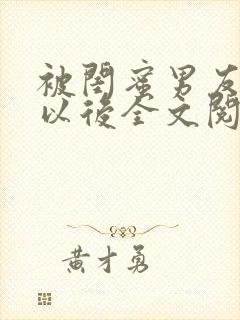 被閨蜜男友
以後全文閱
黃才勇